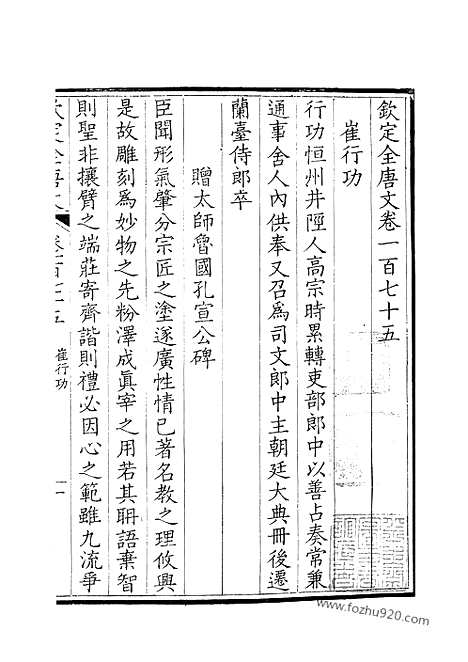 欽定全唐文卷一百七十五
崔行功
行功恒州井陘人高宗時累轉吏部郎中以善占奏常兼
通事舍人內供奉又召爲司文郎中主朝廷大典冊後遷
蘭臺侍郎卒
贈太師魯國孔宣公碑
臣聞形氣肇分宗匠之塗遂廣性情已著名教之理攸興
是故雕刻爲妙物之先粉澤成眞宰之用若其聃語棄智
則聖非攘臂之端莊寄齊諧則禮必因心之範雖九流爭
欽定全唐文 卷一百七十五 崔行功 一
www.fozhu920.com